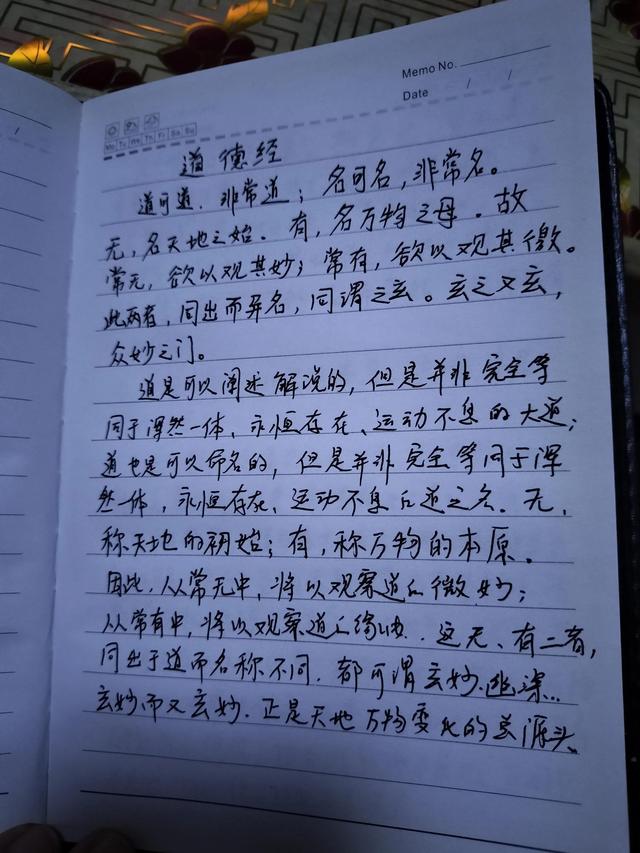 Memo No.
Date / /
Mo Tu We Th Fr Sa Su
道德经
道可道，非常道；名可名，非常名。
无，名天地之始。有，名万物之母。故
常无，欲以观其妙；常有，欲以观其徼。
此两者，同出而异名，同谓之玄。玄之又玄，
众妙之门。
道是可以阐述解说的，但是并非完全等
同于浑然一体、永恒存在、运动不息的大道；
道也是可以命名的，但是并非完全等同于浑
然一体，永恒存在、运动不息的道之名。无，
称天地的初始；有，称万物的本原。
因此，从常无中，将以观察道的微妙；
从常有中，将以观察道的缘由．这无、有二者，
同出于道而名称不同．都可谓玄妙．幽深．
玄妙而又玄妙．正是天地万物变化的总源头、